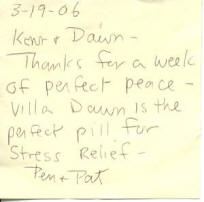 3-19-06
Kent & Dawn -
Thanks for a week
of perfect peace -
Villa Dawn is the
perfect pill for
Stress Relief -
Pen & Pat